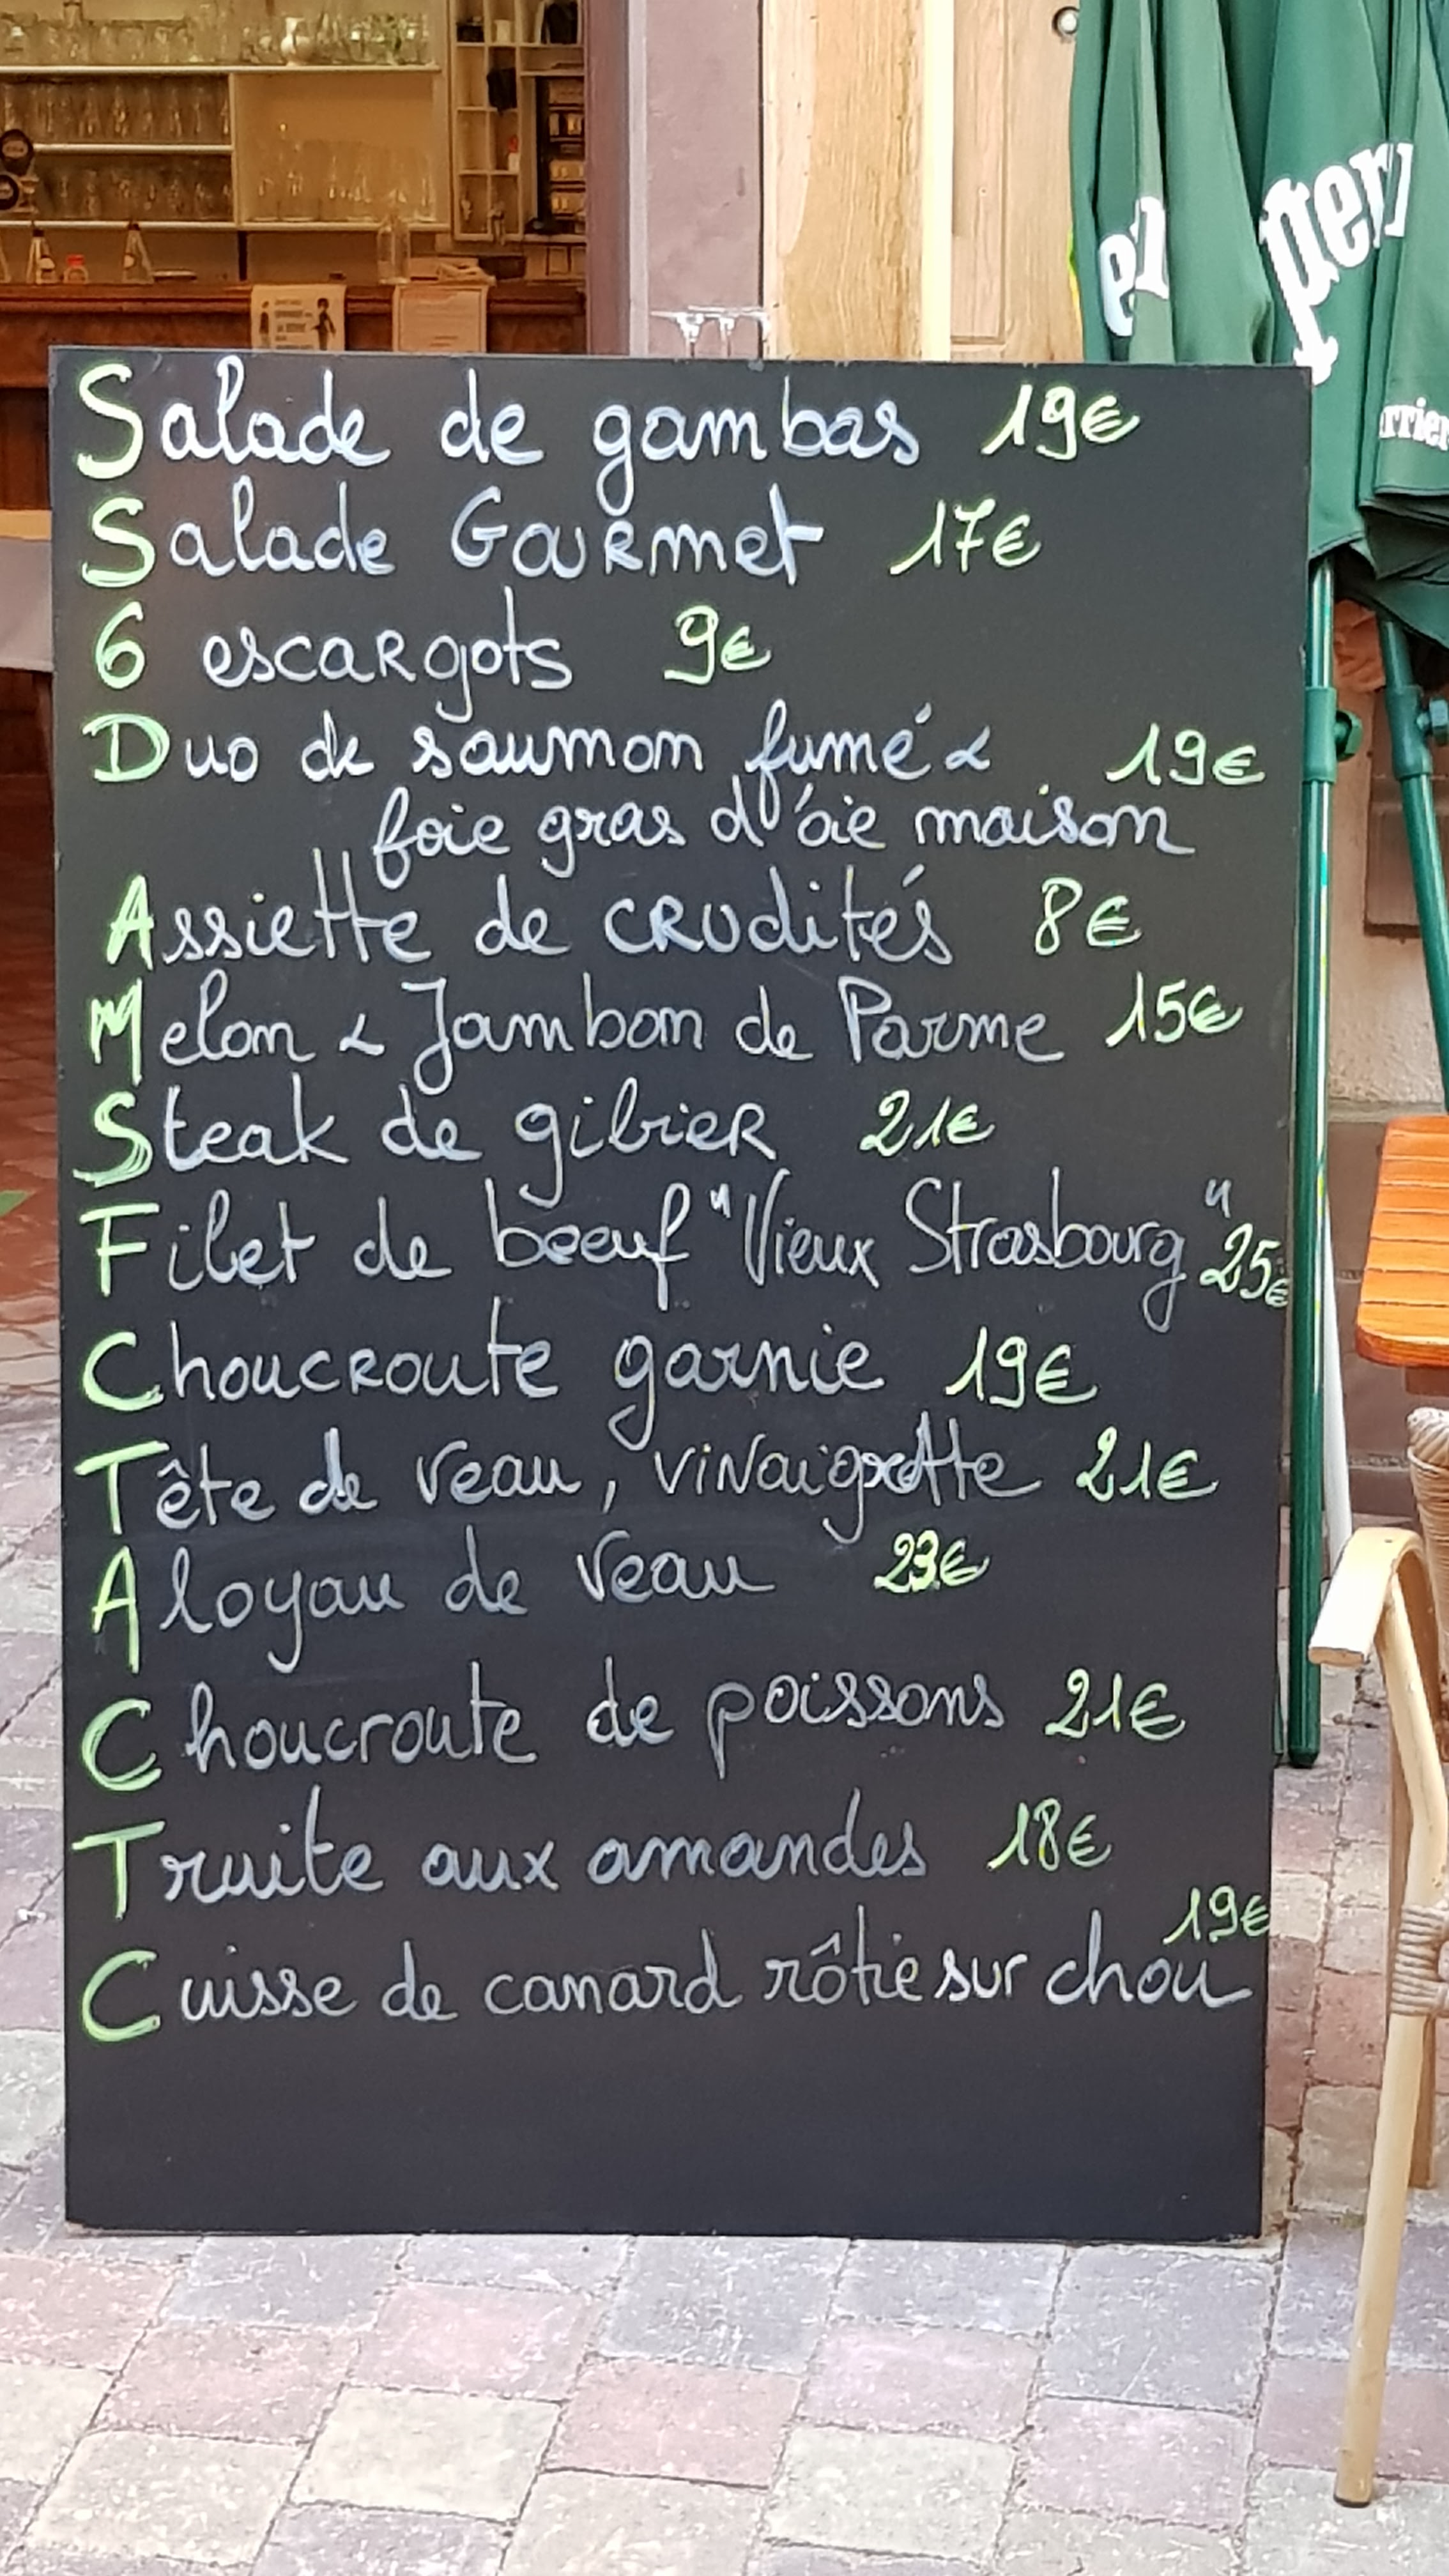 Salade de gambas 19€
Salade Gourmet 17€
6 escargots 9€
Duo de saumon fumé & 19€
foie gras d'oie maison
Assiette de crudités 8€
Melon & Jambon de Parme 15€
Steak de gibier 21€
Filet de boeuf "Vieux Strasbourg" 25€
Choucroute garnie 19€
Tête de veau, vinaigrette 21€
Aloyau de veau 23€
Choucroute de poissons 21€
Truite aux amandes 18€
19€
Cuisse de canard rôtie sur chou